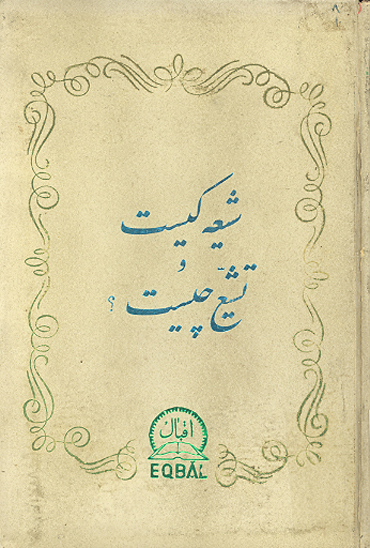 شیعه کیست
و
تشیّع چیست ؟
اقبال
EQBÂL